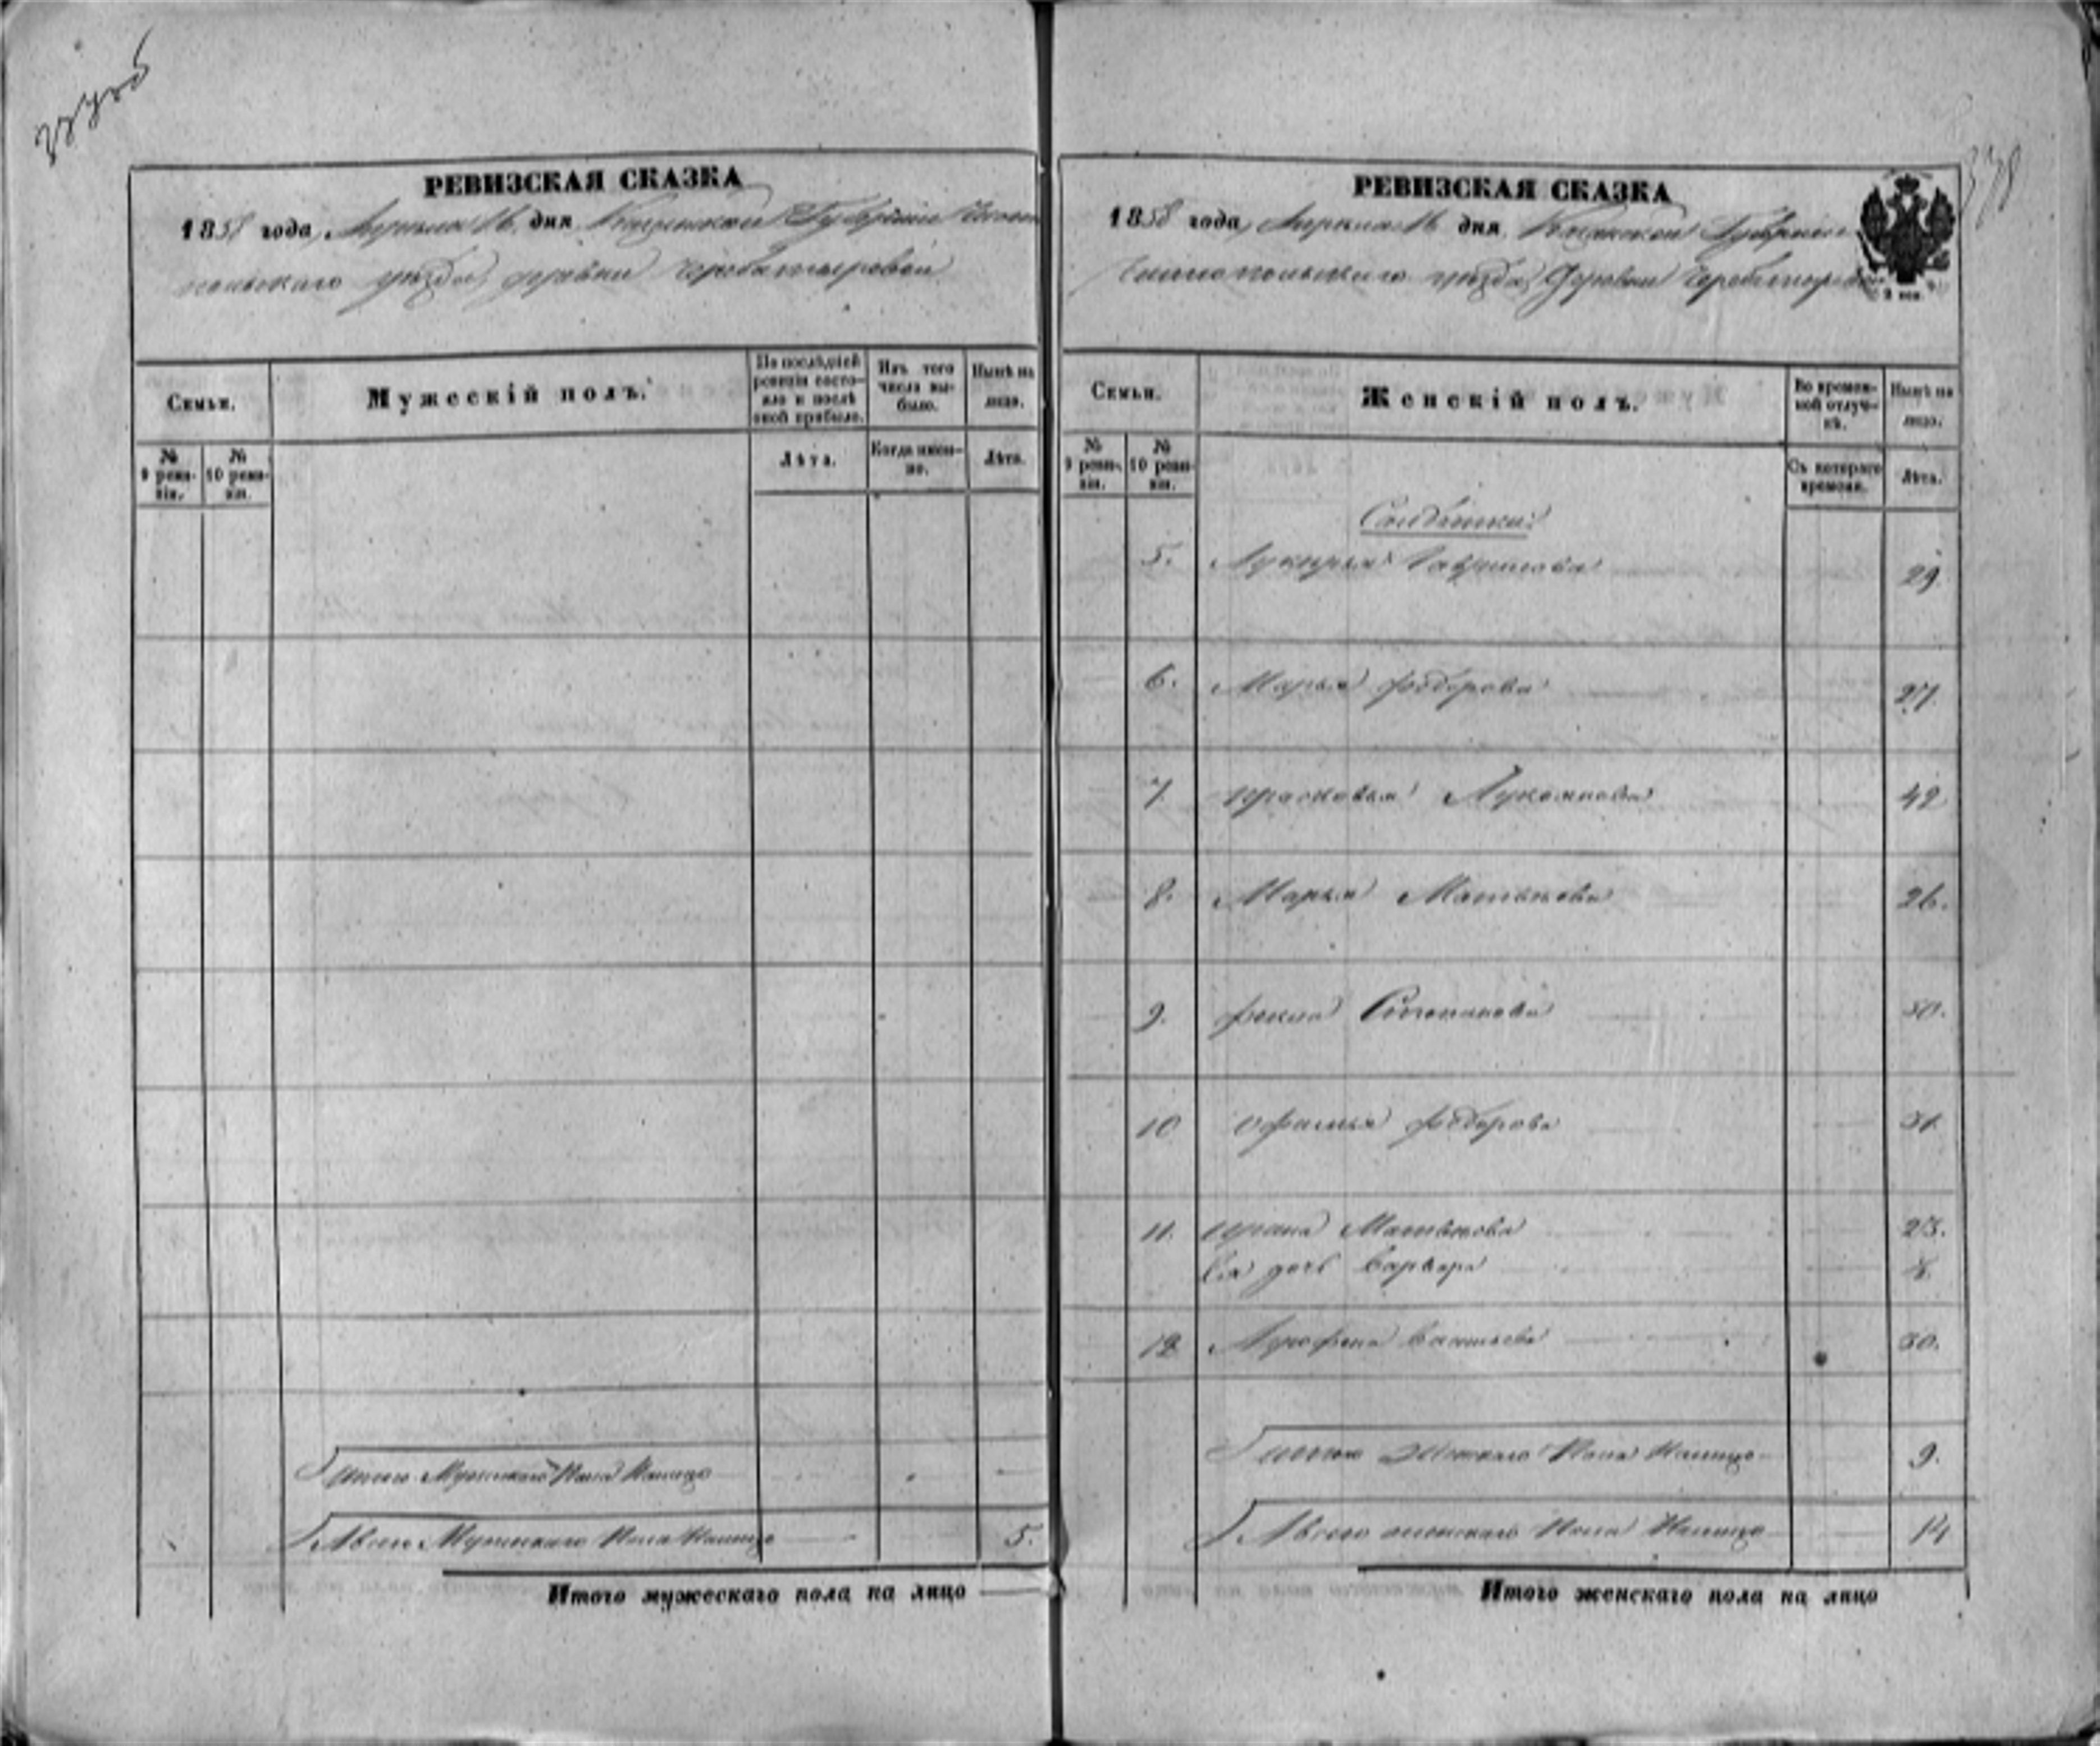 РЕВИЗСКАЯ СКАЗКА
1858 года, Апреля 16 дня Казанской Губернии Чисто
польскаго уезда, деревни
Семьи.
Мужескій полъ.
По послѣдней ревизіи состояло и послѣ оной прибыло.
Изъ того числа выбыло.
Нынѣ на лицо.
№ 9 ревизіи.
№ 10 ревизіи.
Лѣта.
Когда именно.
Лѣта.
Итого Мужескаго Пола Налицо
Всего Мужескаго Пола Налицо 5.
Итого мужескаго пола на лицо
378
РЕВИЗСКАЯ СКАЗКА
1858 года, Апреля 16 дня Казанской Губернии
Чистопольскаго уезда, Деревни
Семьи.
Женскій полъ.
Во временной отлучкѣ.
Нынѣ на лицо.
№ 9 ревизіи.
№ 10 ревизіи.
Съ котораго времени.
Лѣта.
Солдатки:
5. Лукерья Гаврилова 29.
6. Марья Федорова 27.
7. Прасковья Лукоянова 42
8. Марья Матвеева 26.
9. Фекла Степанова 50.
10 Офимья Федорова 31.
11. Ирина Матвеева 23.
Ея дочь Варвара
12 Аграфена Васильева 30.
Итого Женскаго Пола Налицо 9.
Всего женскаго Пола Налицо 14
Итого женскаго пола на лицо